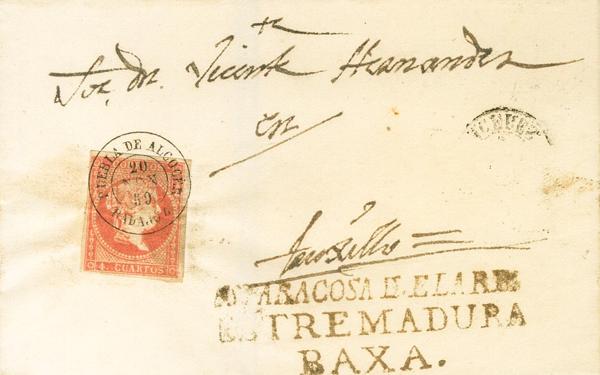 Sor. dn. Vicente Hernandez
en
PUEBLA DE ALCOCER
20
59
BADAJOZ
4 CUARTOS
Truxillo
ESTREMADURA
BAXA.